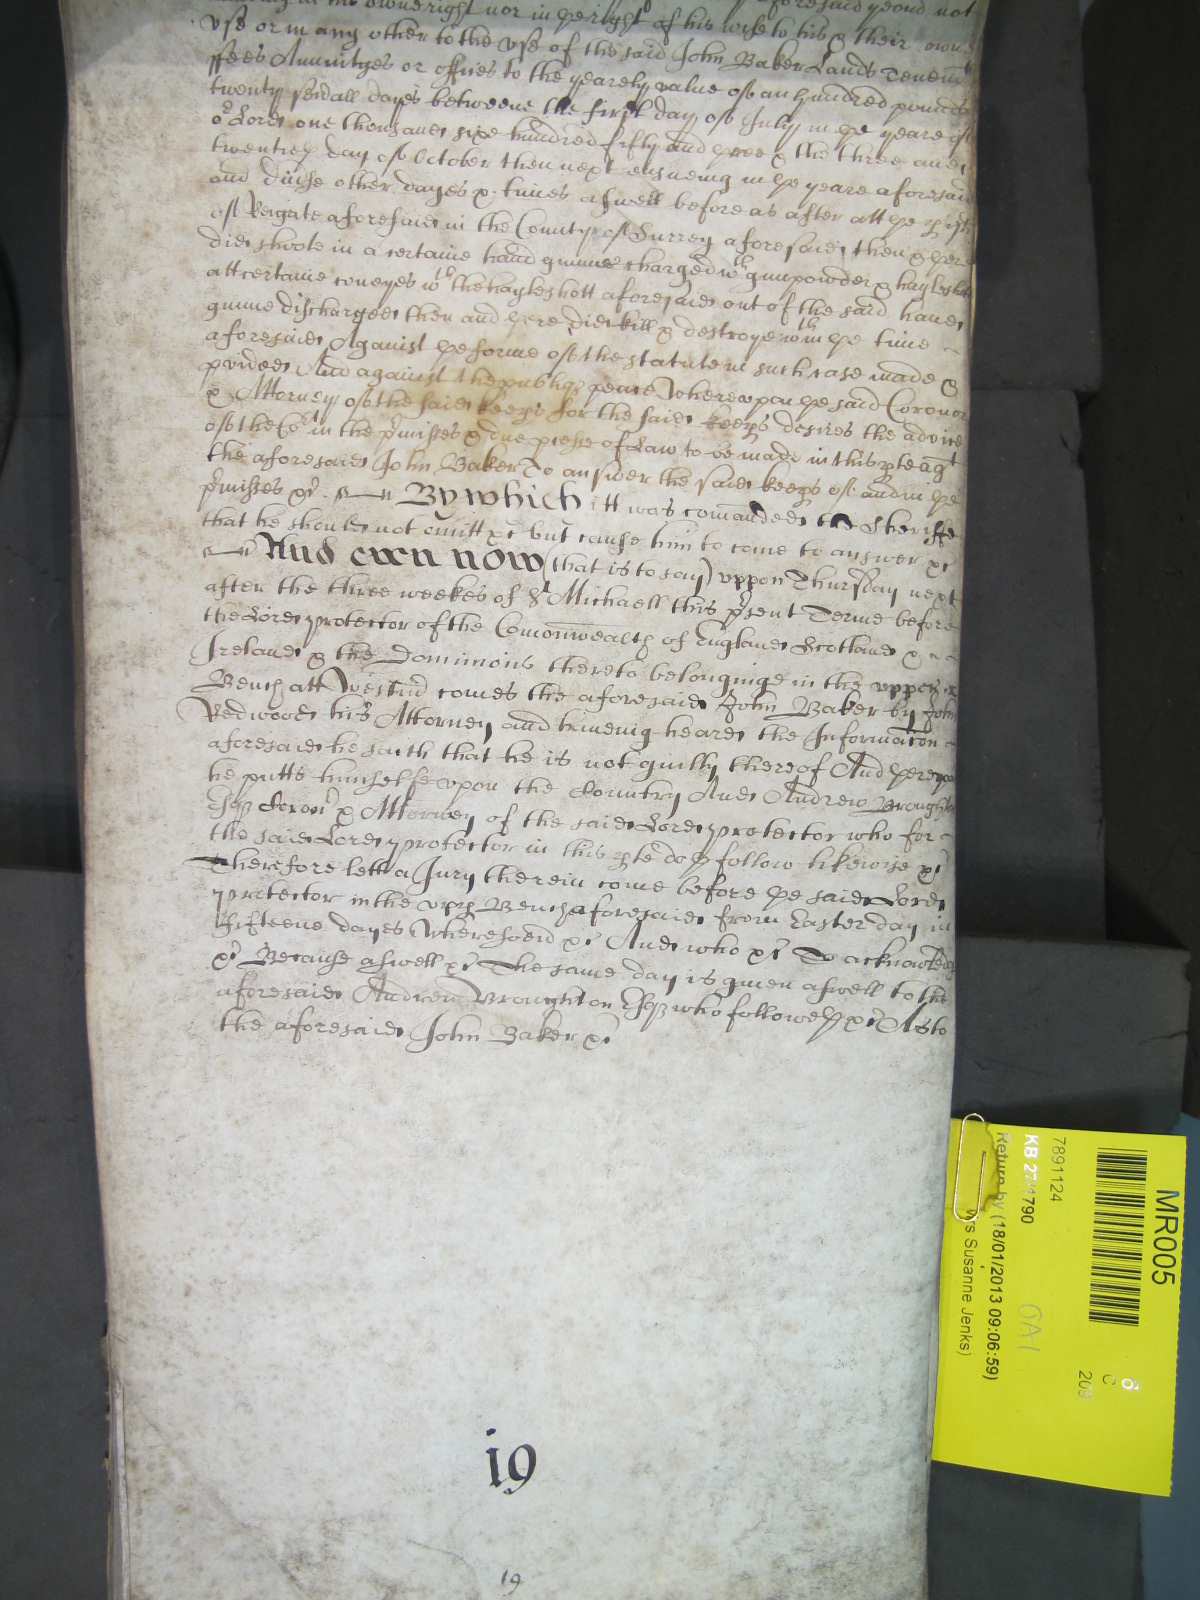 in his owne right nor in ye right of his wife to his & their owne
vse or in any other to the vse of the said John Baker Lands Tenemts
ffees Annuityes or offices to the yearely value of an hundred pounds
twenty seu'all dayes betweene the first day of July in ye yeare of
or Lord one thousand six hundred fifty and three & the three and
twentieth day of October then next ensueing in ye yeare aforesaid
and diu'se other dayes & times aswell before as after att ye p'ish
of Reigate aforesaid in the County of Surrey aforesaid then & there
did shoote in a certaine hand gunne charged wth gunpowder & hayleshott
att certaine coneyes wth the hayleshott aforesaid out of the said hand
gunne discharged then and there did kill & destroye wthin ye time
aforesaid Against ye forme of the statute in such case made &
p'vided And against the publiq peace Whereupon ye said Coronor
& Attorney of the said keeps for the said keeps desires the advice
of the Cort in the p'misses & due p'cesse of Law to be made in this p'te agt
the aforesaid John Baker To answer the said keeps of and in ye
p'misses &c By which itt was comanded the Sheriffe
that he should not omitt &c but cause him to come to answer &c
And even now (that is to say) uppon Thursday next
after the three weekes of St Michaell this p'sent Terme before
the Lord protector of the Comonwealth of England Scotland &
Ireland & the Dominions thereto belonginge in the upper
Bench att Westm' comes the aforesaid John Baker by John
Redwood his Attorney and haueing heard the Informac'on
aforesaid he saith that he is not guilty thereof And thereupon
he putts himselfe upon the Country And Andrew Broughton
Esq Coron' & Attorney of the said Lord protector who for
the said Lord protector in this p'te doth follow likewise &c
Therefore lett a Jury therein come before ye said Lord
protector in the upp' Bench aforesaid from Easter day in
fifteene dayes Wheresoeu' &c And who &c To acknowledge
&c Because aswell &c The same day is giuen aswell to the
aforesaid Andrew Broughton Esq who followeth &c As to
the aforesaid John Baker &c
i9
19
MR005
7891124
KB 27/1790
Return by (18/01/2013 09:06:59)
Susanne Jenks)
GA1
6
C
209